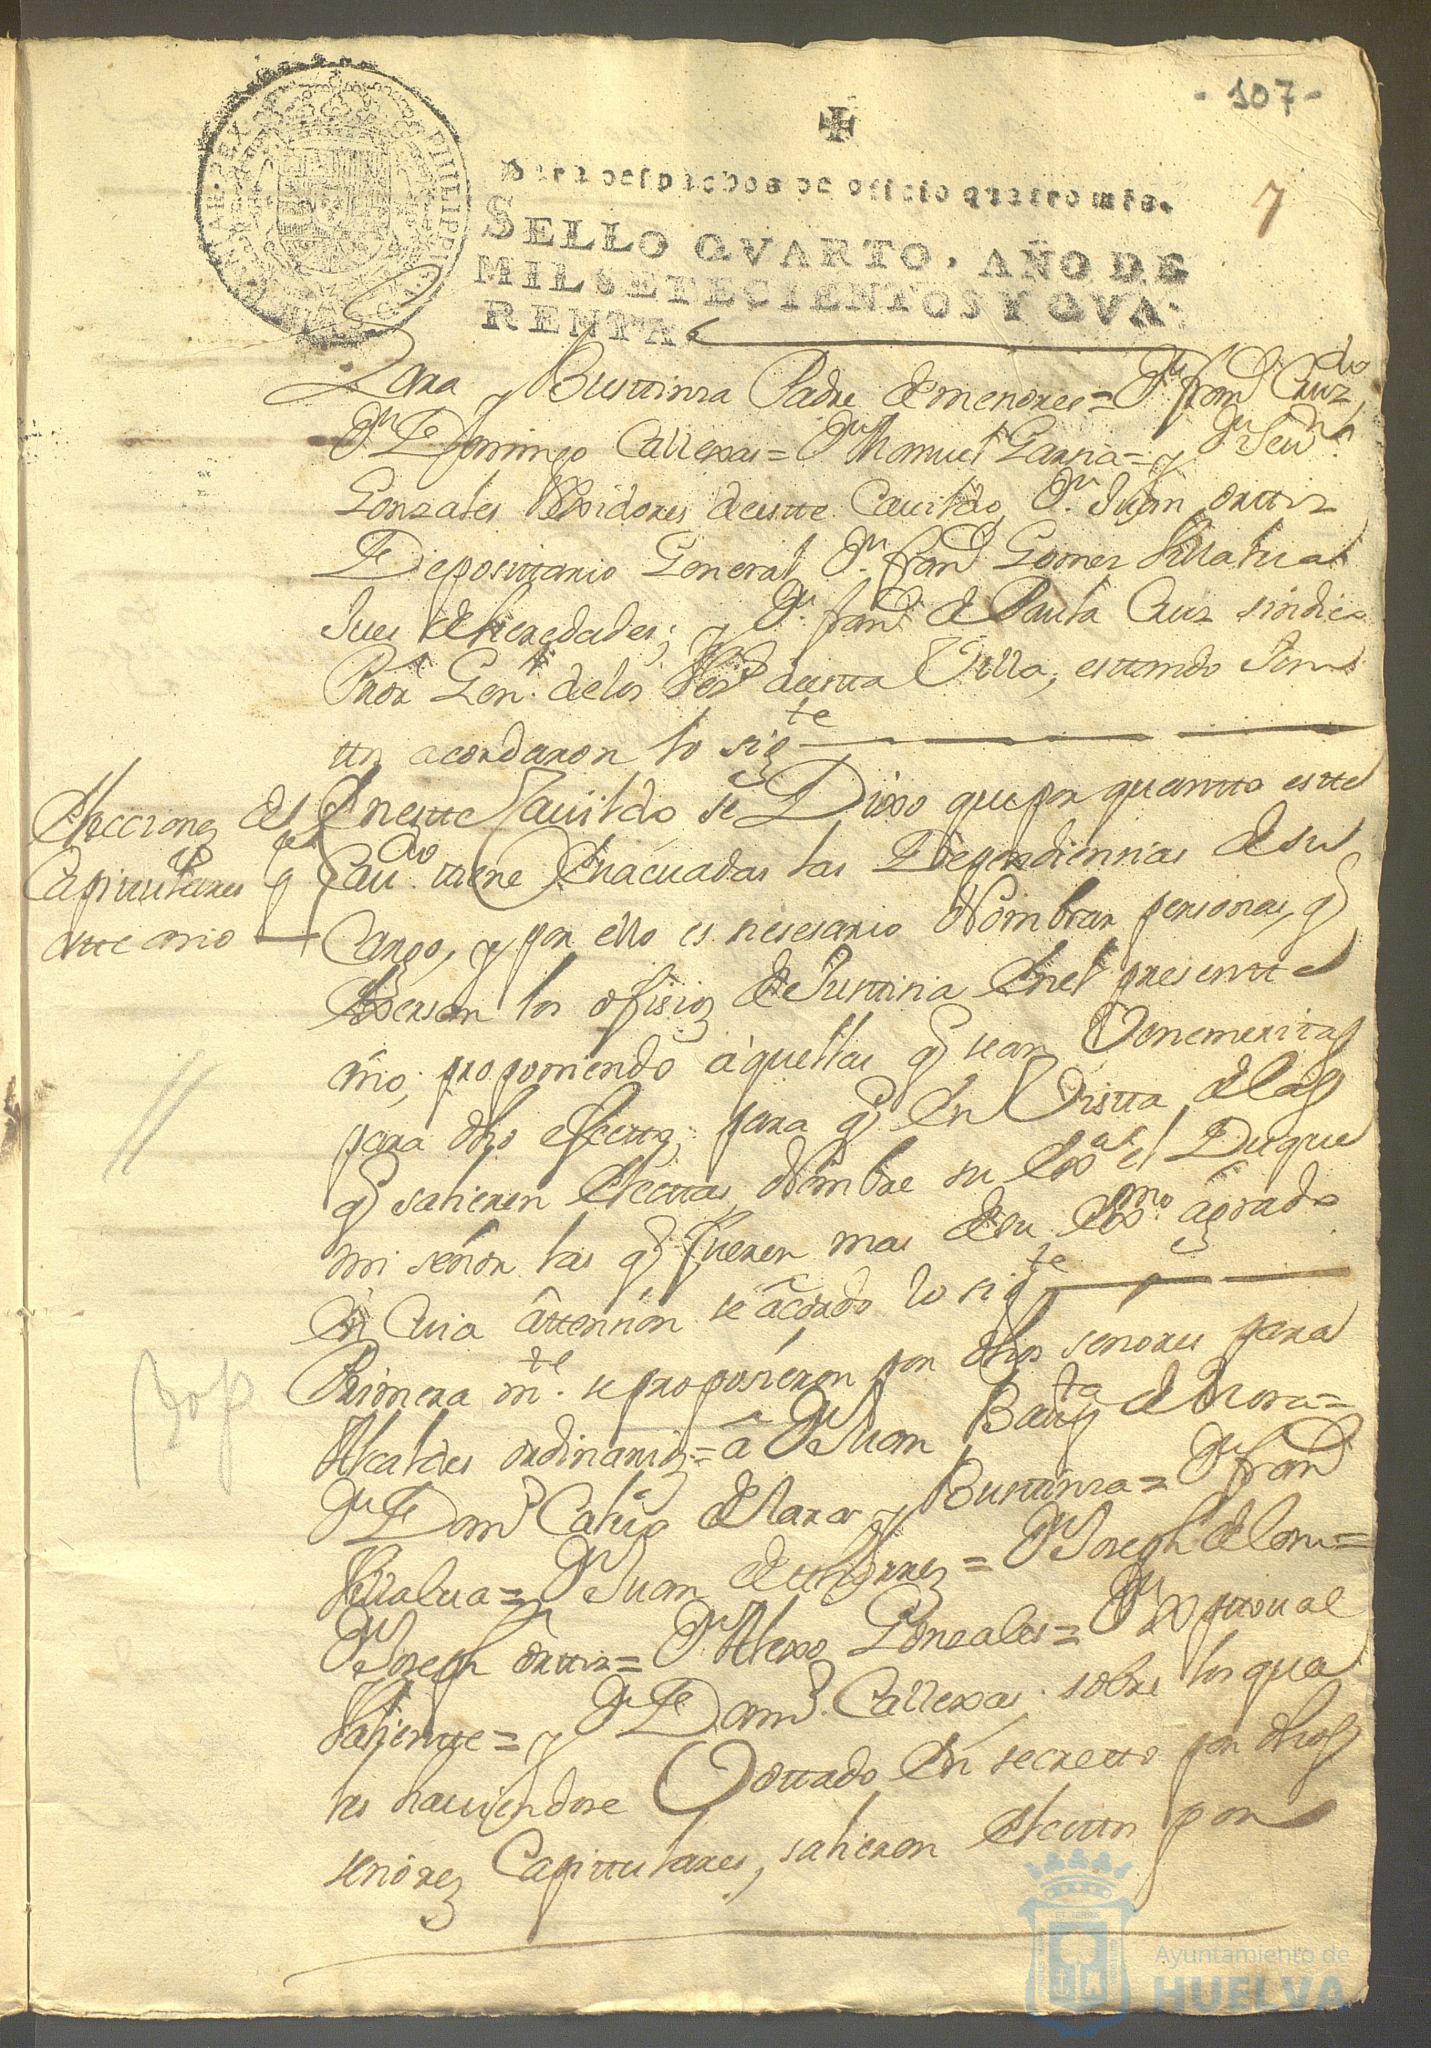 - 107 -
7
Para despachos de oficio quatro mrs.
SELLO QVARTO, AÑO DE
MILSETECIENTOS Y QVA-
RENTA
Lara y Busttinza Padre de menores = Dn. Frano. Cruz
Dn. Domingo Callexas = Dn. Manuel Garzia = y Dn.
Gonzales Rexidores deestte Cavildo, Dn. Juan orttiz
Deposittario General Dn. Frano. Gomez Villalua
Jues de heredades; y Dn. Frano. de Paula Cruz sindico
Pror. Genl. delos Vezs. destta Villa, esttando Juns
ttos acordaron lo sigte
Elecciones de
Capittulares pa.
estte año
En estte Cavildo se Dixo que por quantto estte
Cavdo. tiene Evacuadas las Dependiencias de su
Cargo, y por ello es nesesario Nombrar personas, q
exersan los ofisios de Justticia Enel presentte
año, proponiendo aquellas q sean Venemeritas
para dho efectto; para q En Vistta delas
q salieren Electtas, Nombre su Exa. el Duque
mi señor las q fueren mas desu Exmo. agrado
En Cuia attension se acordo lo sigte
Primera mte. se propusieron por dhos señores para
Alcaldes ordinarios = a Dn. Juan Bautta de Mora =
Dn. Domo. Calisto de Lara y Busttinza = Dn. Frano.
Villalua = Dn. Juan de = Dn. Joseph de =
Dn. Joseph orttiz = Dn. Alexo Gonzales = Dn. Xpttoual
Valientte = y Dn. Domo. Callexas. sobre los qua
les haviendose Vottado En secretto por dhos
señores Capittulares, salieron Electtos por
Ayuntamiento de
HUELVA